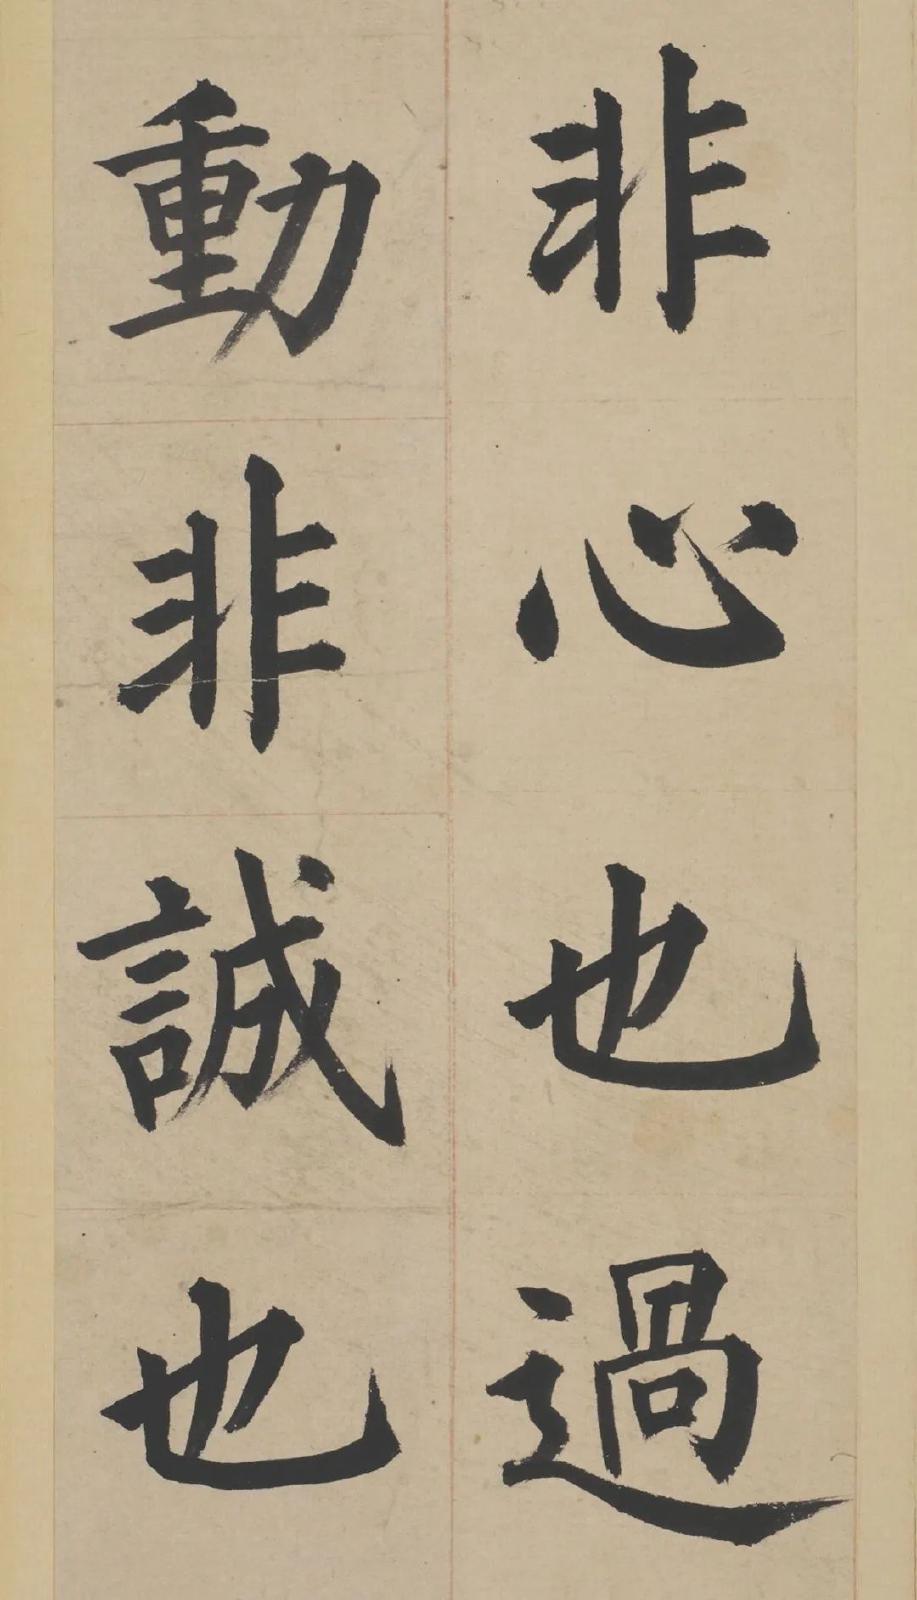 非心也過
動非誠也